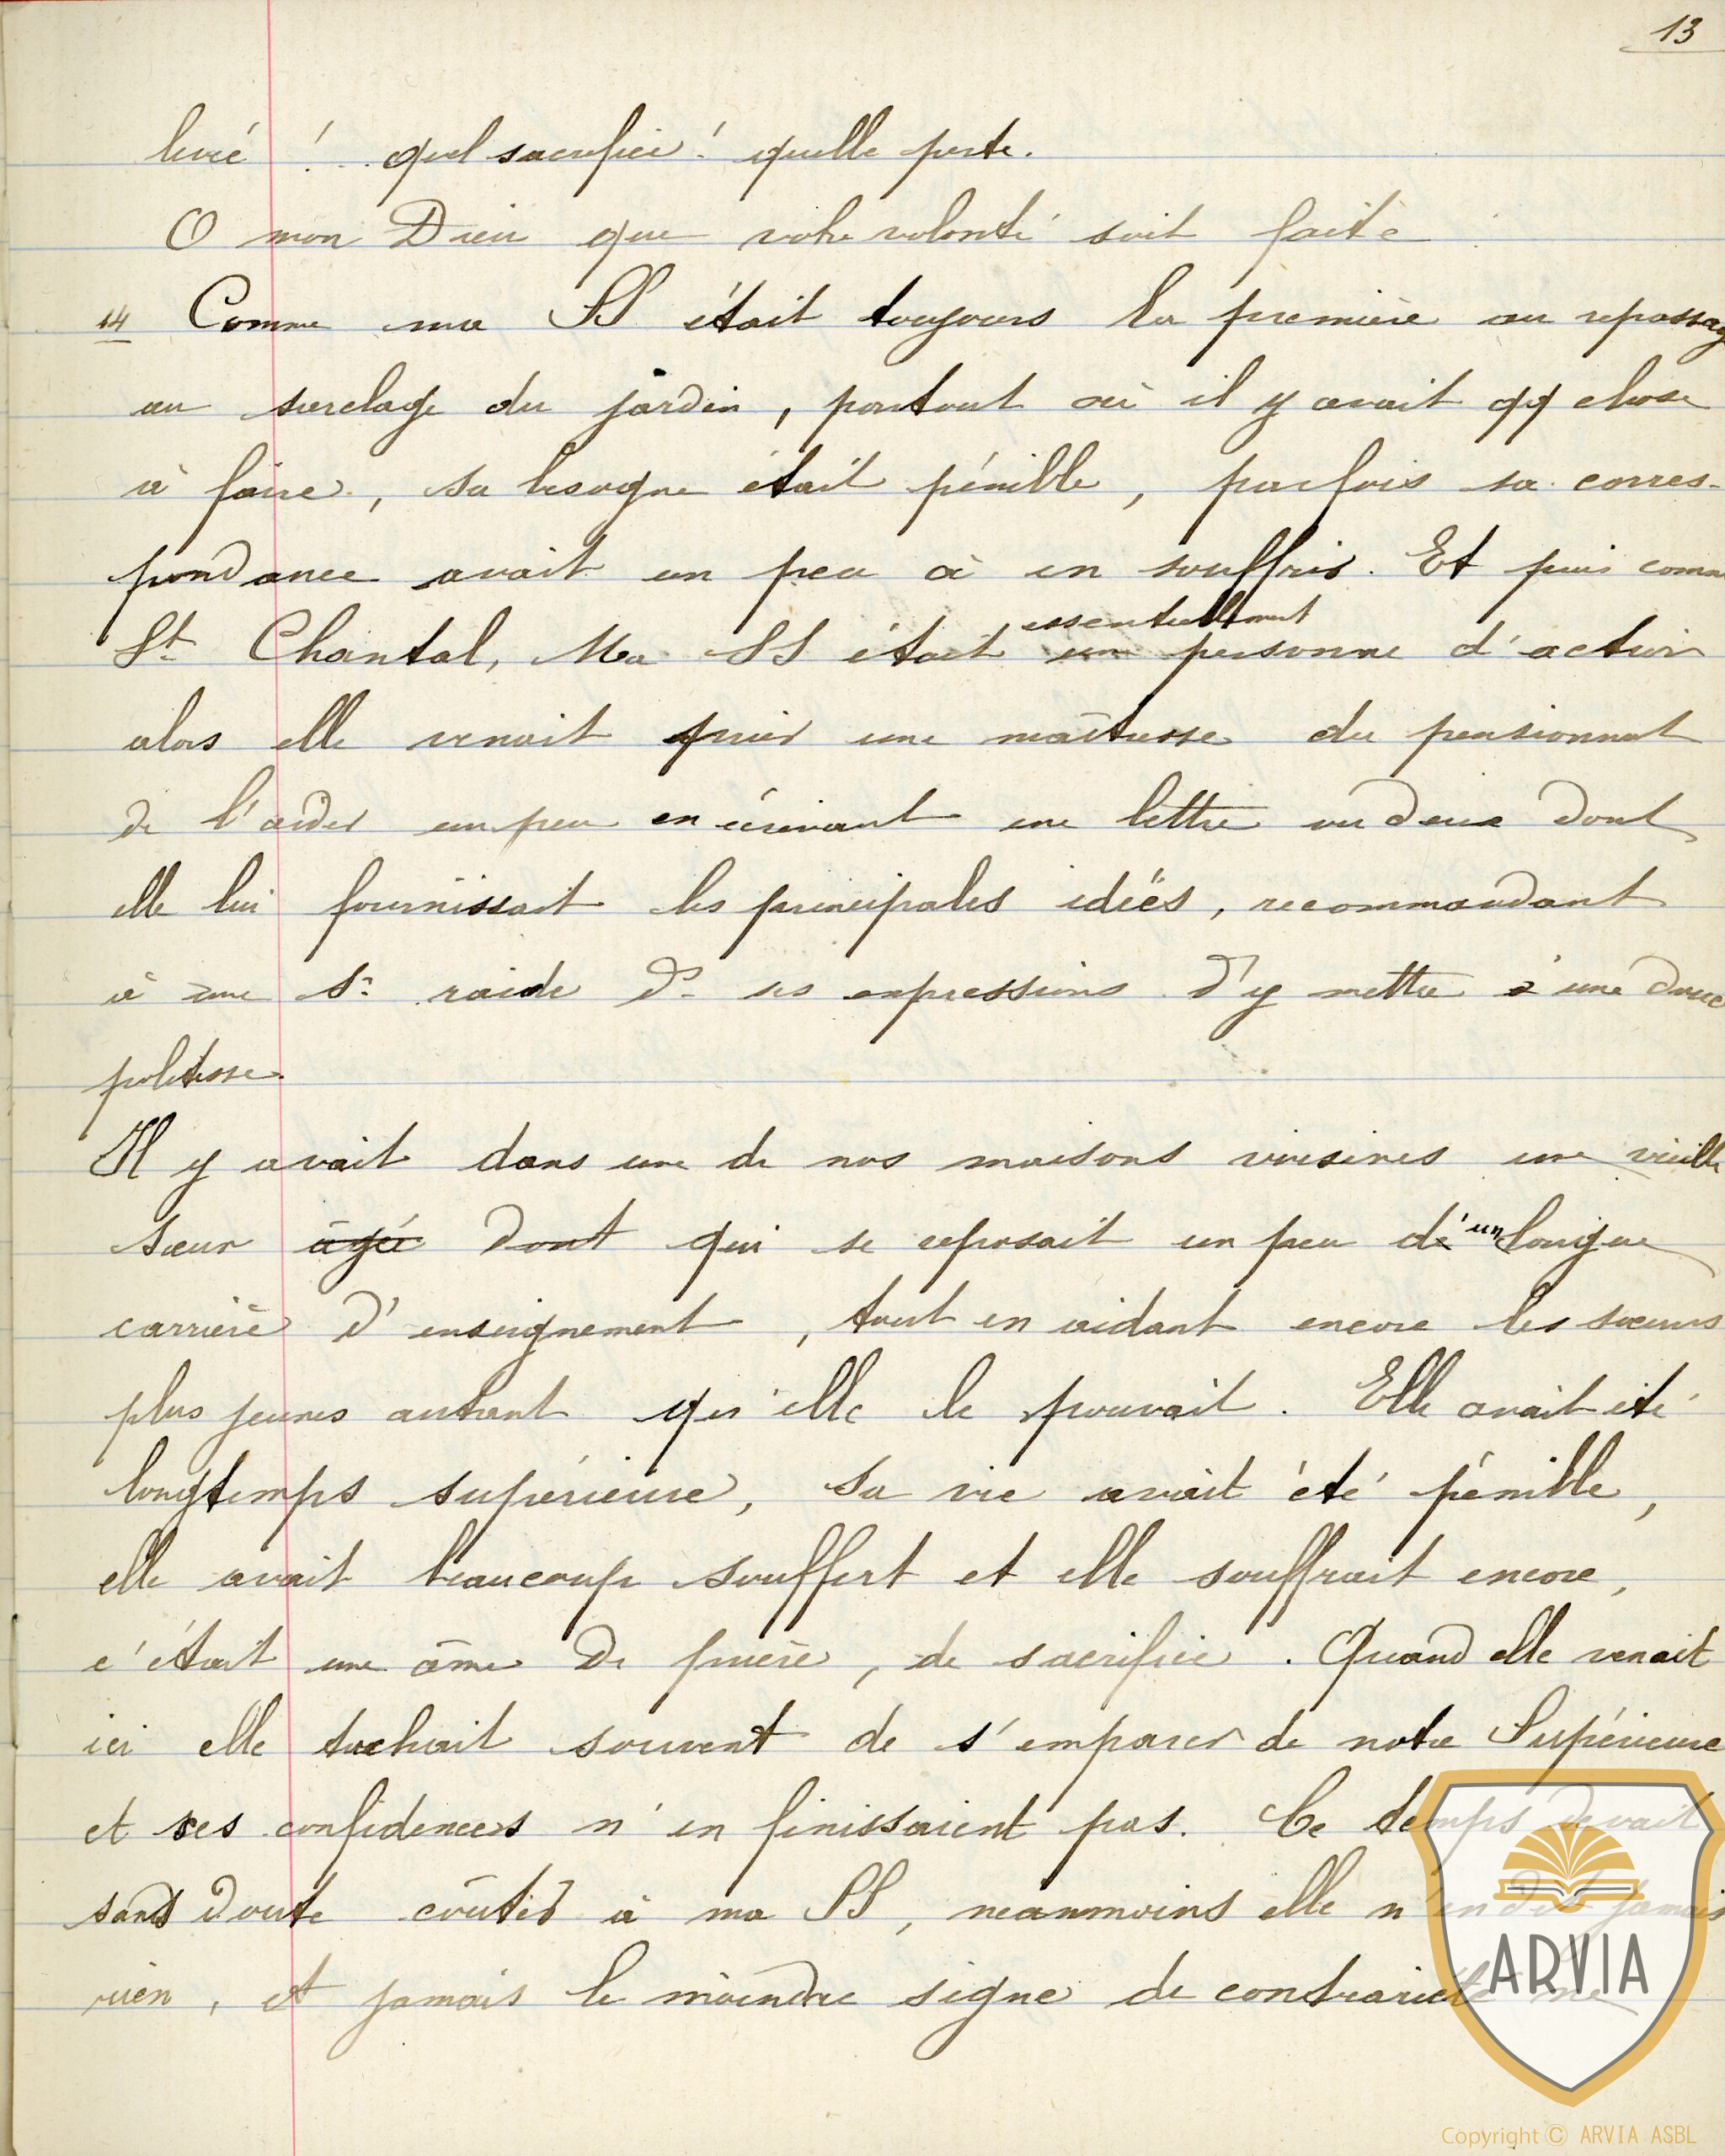 13
livré ! quel sacrifice ! quelle perte.
O mon Dieu que votre volonté soit faite
14 Comme ma SS était toujours la première au repassag
au sarclage du jardin, partout où il y avait qq chose
à faire, sa besogne était pénible, parfois sa corres-
pondance avait un peu à en souffrir. Et puis comm
St Chantal, Ma SS était essentiellement une personne d'action
alors elle venait prier une maîtresse du pensionnat
de l'aider un peu en écrivant une lettre ou deux dont
elle lui fournissait les principales idées, recommandant
à une Sr raide ds ses expressions d'y mettre une douce
politesse.
Il y avait dans une de nos maisons voisines une vieille
sœur âgée dont qui se reposait un peu d'un longue
carrière d'enseignement, tout en aidant encore les sœurs
plus jeunes autant qu'elle le pouvait. Elle avait été
longtemps supérieure, sa vie avait été pénible,
elle avait beaucoup souffert et elle souffrait encore,
c'était une âme de prière, de sacrifice. Quand elle venait
ici elle tachait souvent de s'emparer de notre Supérieure
et ses confidences n'en finissaient pas. Ce temps devait
sans doute coûter à ma SS, neanmoins elle n'en dit jamais
rien, et jamais le moindre signe de contrariété ne
ARVIA
Copyright © ARVIA ASBL